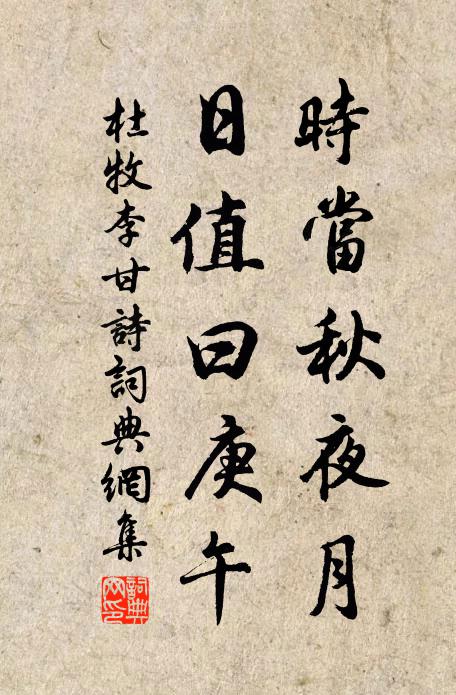 時當秋夜月
日值曰庚午
杜牧李甘詩詞典網集
詞典網印